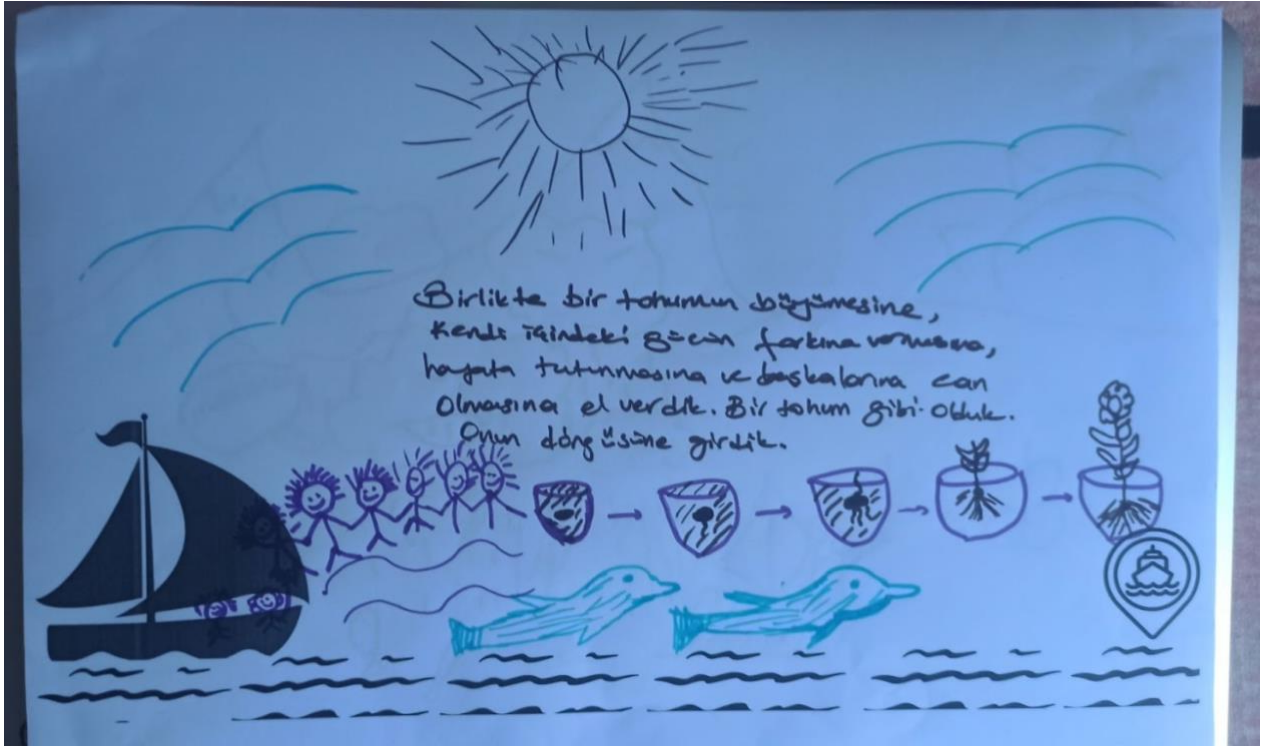 Birlikte bir tohumun büyümesine,
Kendi içindeki gücün farkına varmasına,
hayata tutunmasına ve başkalarına can
Olmasına el verdik. Bir tohum gibi olduk.
Onun döngüsüne girdik.